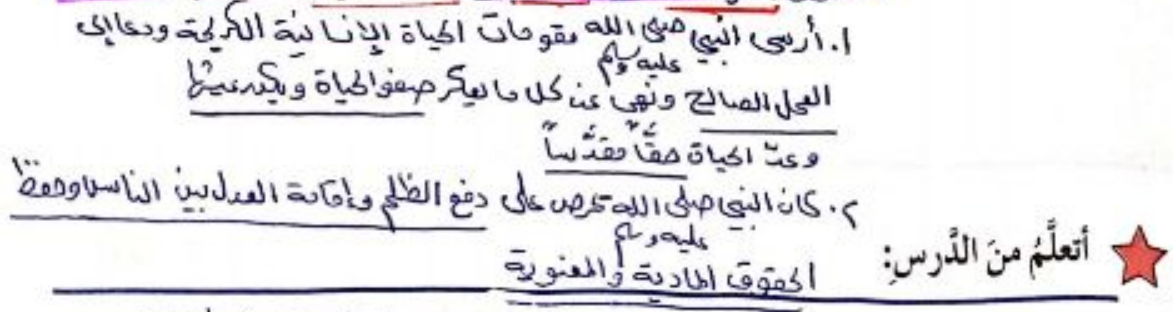 ١. أرسى النبي صلى الله عليه وسلم مقومات الحياة الإنسانية الكريمة ودعا إلى
العمل الصالح ونهى عن كل ما يعكر صفو الحياة ويكدر عيشها
وعدّ الحياة حقًّا مقدَّساً
٢. كان النبي صلى الله عليه وسلم يحرص على دفع الظلم وإقامة العدل بين الناس وحفظ
الحقوق المادية والمعنوية
أتعلَّمُ منَ الدَّرسِ: